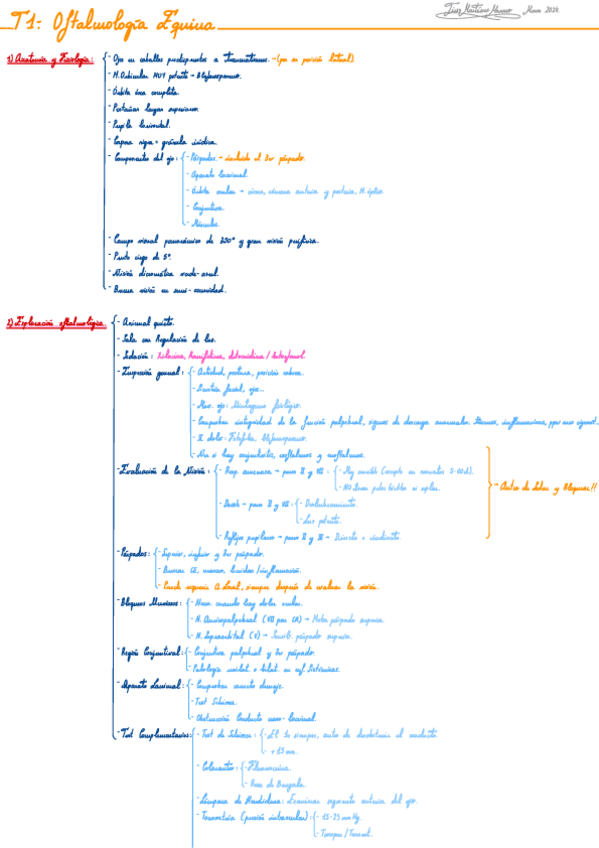 T1: Oftalmología Equina
1) Anatomía y Fisiología:
- Ojo en caballos predispuestos a Traumatismos. (por su posición lateral).
- M. Orbicular MUY potente → Blefaroespasmo.
- Órbita ósea completa.
- Pestañas largas superiores.
- Pupila horizontal.
- Cuerpos nigra = gránula iridica.
- Componentes del ojo:
- Párpados. → incluido el 3er párpado.
- Aparato lacrimal.
- Conjuntiva.
- Músculos.
- Campo visual panorámico de 350° y gran visión periférica.
- Punto ciego de 5°.
- Visión dicromática verde-azul.
- Buena visión en semi-oscuridad.
2) Exploración oftalmológica:
- Animal quieto.
- Sala con Regulación de luz.
- Sedación: Xilacina, Romifidina, detomidina / butorfanol.
- Impresión general:
- Actitud, postura, posición cabeza.
- Simetría facial, ojos...
- Mov. ojo: Nistagmo fisiológico.
- Comprobar integridad de la función palpebral, signos de descarga
- Si dolor: Fotofobia, Blefaroespasmo.
- Ver si hay conjuntivitis, exoftalmos y enoftalmos.
- Evaluación de la Visión:
- Resp. amenaza → pares II y VII:
- NO llevar pelos
- Dazzle → pares II y VII:
- Deslumbramiento.
- Luz potente.
- Reflejos pupilares → pares II y III → Directo e indirecto.
→ Antes de Sedar y Bloquear!!
- Párpados:
- Superior, inferior y 3er párpado.
- Buscar CE, masas, heridas/inflamación.
- Puede requerir A. Local, siempre después de evaluar la visión.
- Bloqueos Nerviosos:
- Hacer cuando hay dolor ocular.
- N. Auriculopalpebral (VII par CN) → Motor párpado superior.
- N. Supraorbital (V) → Sensib. párpado superior.
- Región Conjuntival:
- Conjuntiva palpebral y 3er párpado.
- Patología unilat. o bilat. en enf. Sistémicas.
- Aparato Lacrimal:
- Comprobar correcto drenaje.
- Test Schirmer.
- Obstrucción Conducto naso-lacrimal.
- Test Complementarios:
- Test de Schirmer:
- El 1o siempre, antes de
- +15 mm.
- Colorantes:
- Fluoresceína.
- Rosa de Bengala.
- Lámpara de Hendidura: Examinar segmento anterior del ojo.
- Tonometría (presión intraocular):
- 15-25 mmHg.
- Tonopen/Tonovet.